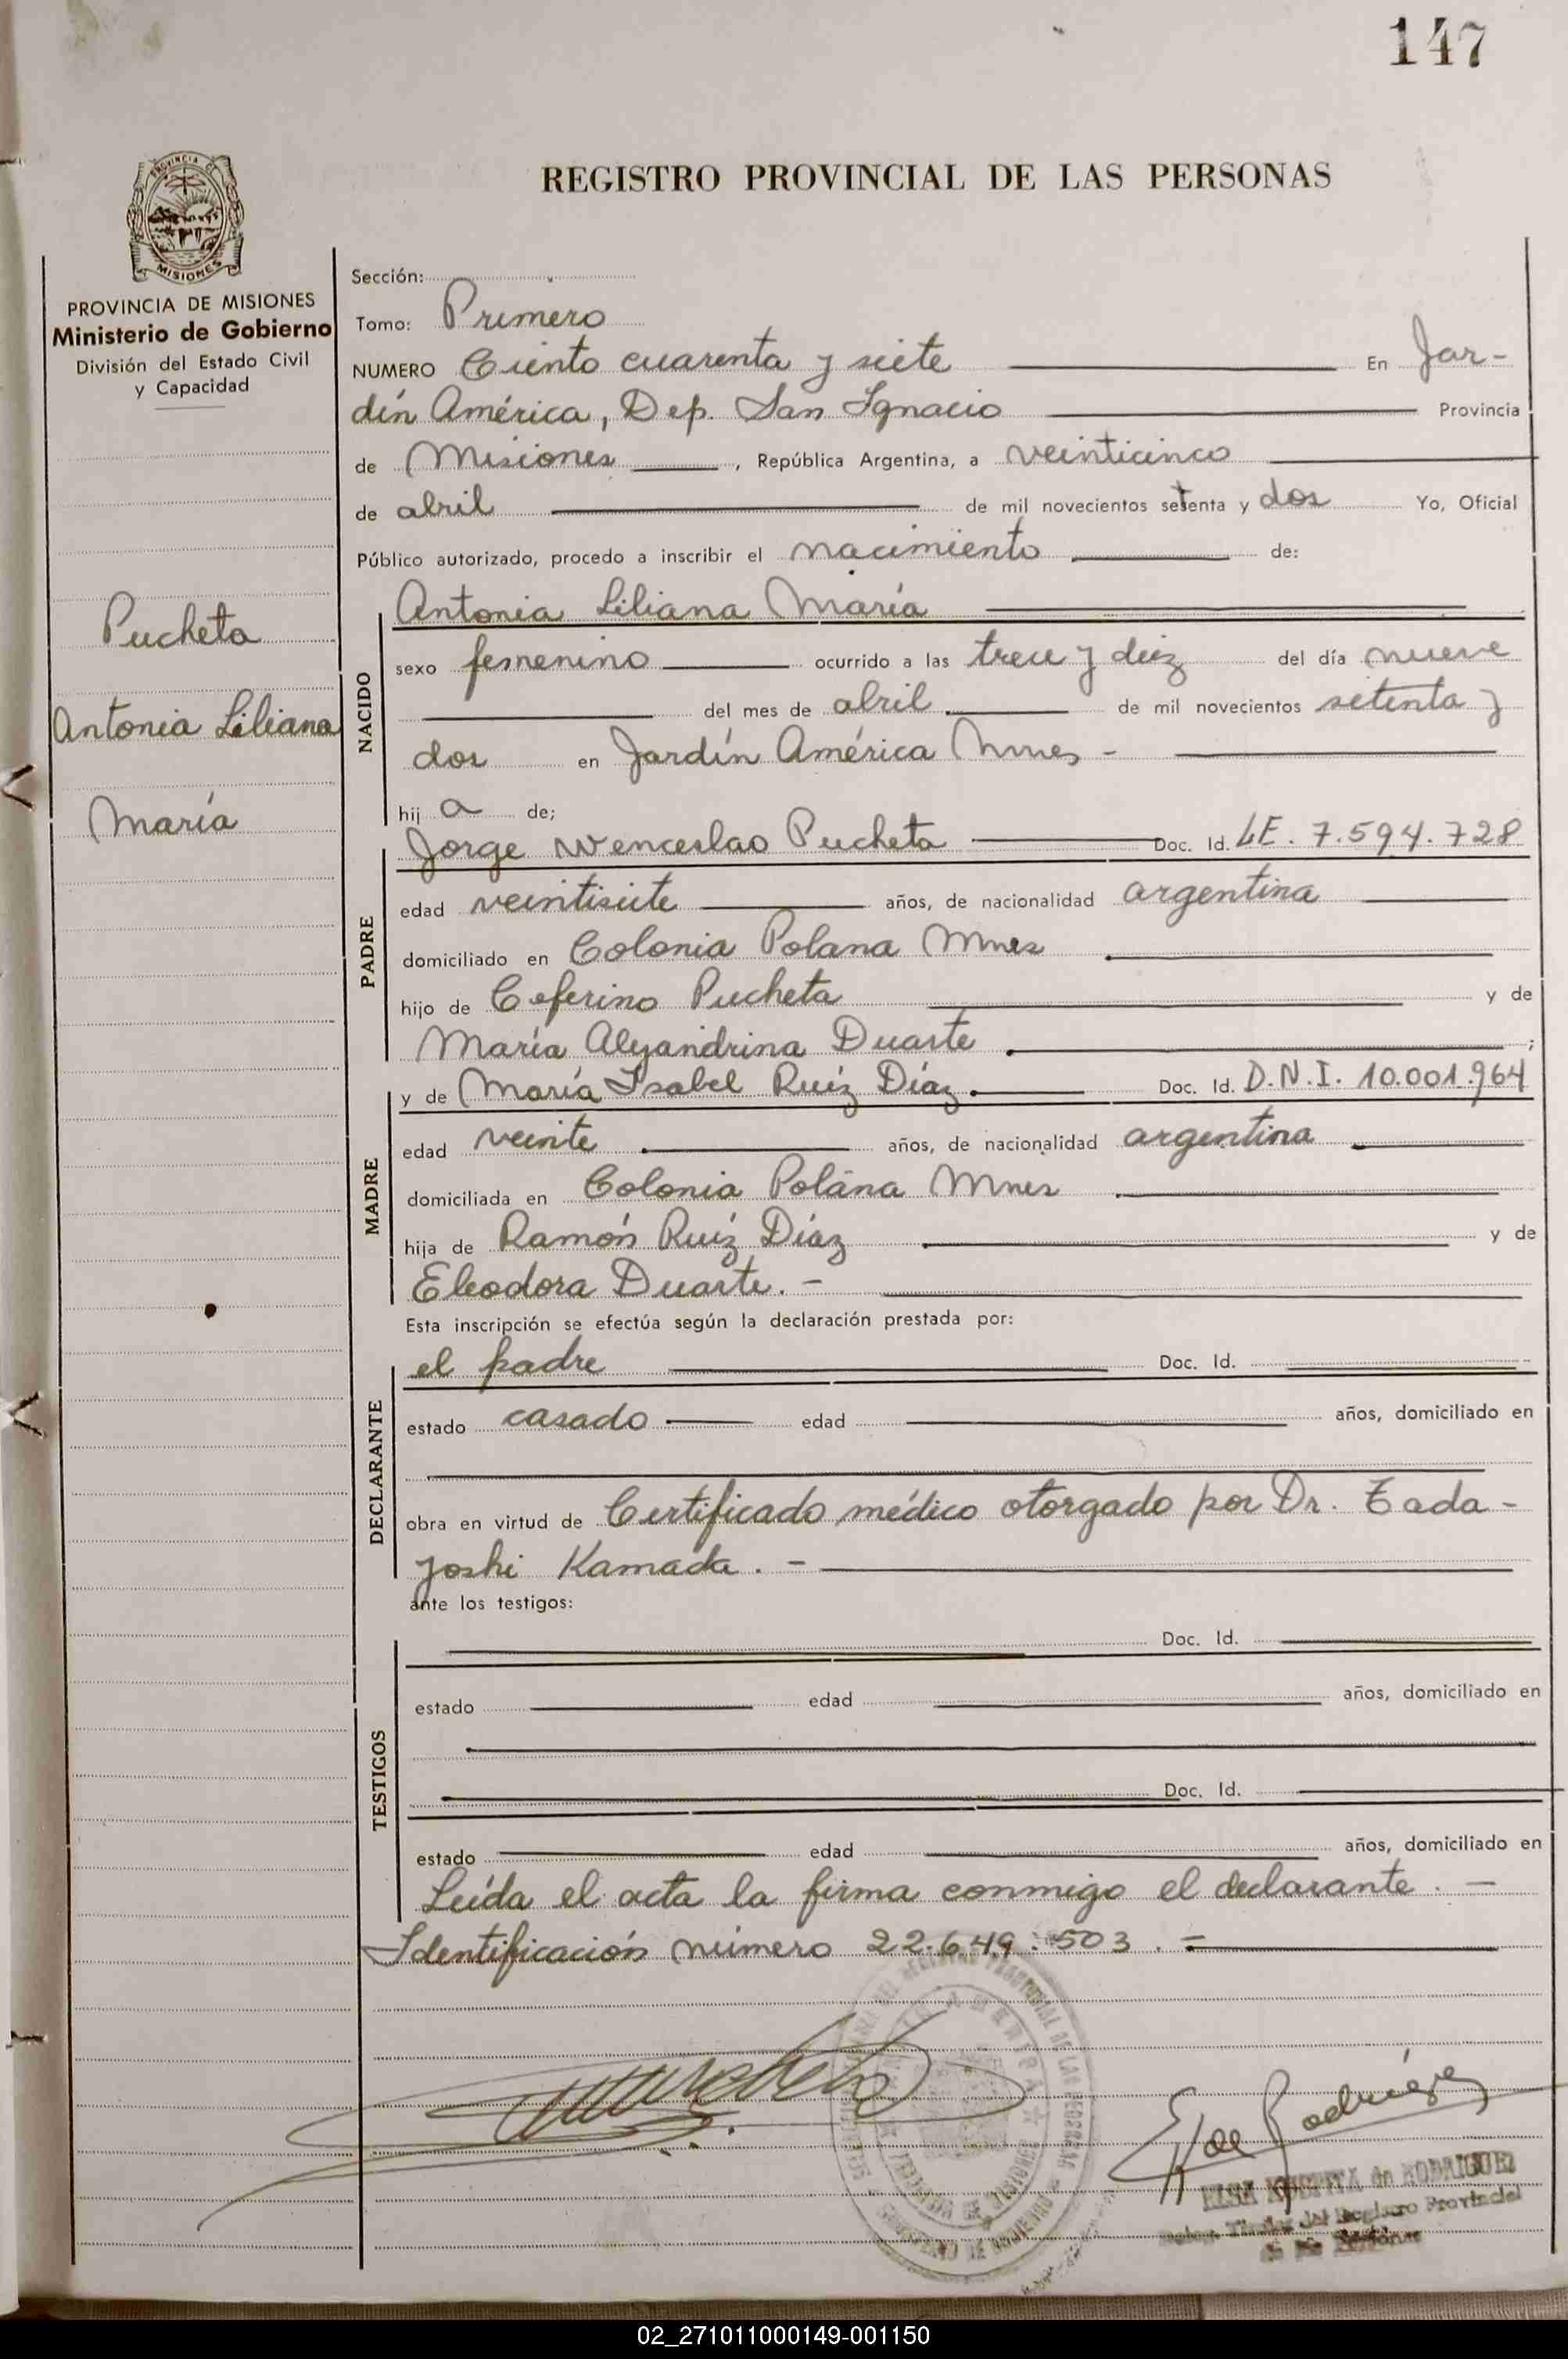 147
REGISTRO PROVINCIAL DE LAS PERSONAS
PROVINCIA
MISIONES
PROVINCIA DE MISIONES
Ministerio de Gobierno
División del Estado Civil
y Capacidad
Pucheta
Antonia Liliana
María
Sección:
Tomo: Primero
NUMERO Ciento cuarenta y siete En Jar-
dín América, Dep. San Ignacio Provincia
de Misiones, República Argentina, a veinticinco
de abril de mil novecientos setenta y dos Yo, Oficial
Público autorizado, procedo a inscribir el nacimiento de:
NACIDO
Antonia Liliana María
sexo femenino ocurrido a las trece y diez del día nueve
del mes de abril de mil novecientos setenta y
dos en Jardín América Mnes -
hij a de;
PADRE
Jorge Wenceslao Pucheta Doc. Id. LE. 7.594.728
edad veintisiete años, de nacionalidad argentina
domiciliado en Colonia Polana Mnes
hijo de Ceferino Pucheta y de
María Alejandrina Duarte ;
MADRE
y de María Isabel Ruíz Díaz. Doc. Id. D.N.I. 10.001.964
edad veinte años, de nacionalidad argentina
domiciliada en Colonia Polana Mnes
hija de Ramón Ruíz Díaz y de
Eleodora Duarte. -
Esta inscripción se efectúa según la declaración prestada por:
DECLARANTE
el padre Doc. Id.
estado casado edad años, domiciliado en
obra en virtud de Certificado médico otorgado por Dr. Tada-
yoshi Kamada. -
ante los testigos:
TESTIGOS
Doc. Id.
estado edad años, domiciliado en
Doc. Id.
estado edad años, domiciliado en
Leída el acta la firma conmigo el declarante. -
Identificación número 22.649.503. =
E de Rodríguez
ELSA de RODRIGUEZ
Titular del Registro Provincial
de las Personas
02_271011000149-001150